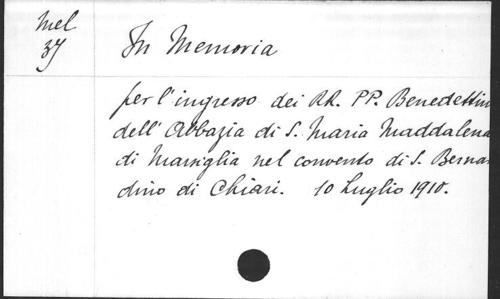 Mel
37
In Memoria
per l'ingresso dei RR. PP. Benedettini
dell' Abbazia di S. Maria Maddalena
di Marsiglia nel convento di S. Bernar
dino di Chiari. 10 Luglio 1910.